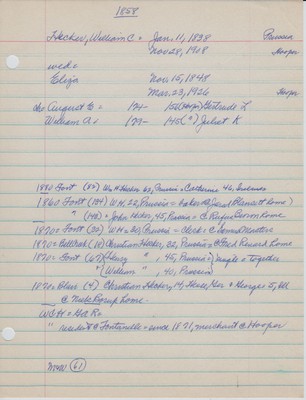 1858
Hecker, William C = Jan. 11, 1838 Prussia
Nov 28, 1908 Hooper
wed=
Eliza Nov. 15, 1848
Mar. 23, 1926 Hooper
ch= August E = 124- 154 (Hooper) Gertrude L
William A = 129- 145 (") Juliet K
1880 Font (52) Wm Hecker 62, Prussia = Catherine 46,
1860 Font (104) W H, 22, Prussia = baker @ Jacob home)
" (142) = John Hecker, 45, Prussia = @ Rufus Brown home
1870 = Font (22) W H = 30, Prussia = clerk @
1870 = Bell Creek (10) Christian Hecker, 22, Prussia = @ Fred Record home
1870 = Font (67) (Henry " , 45, Prussia = ) single = together
" (William " , 40, Prussia)
1870 = Blair (4) Christian Hecker, 14, = George, 5,
@ home
W C H = G.A.R =
" resident @ Fontanelle = since 1871, merchant @ Hooper
(61)